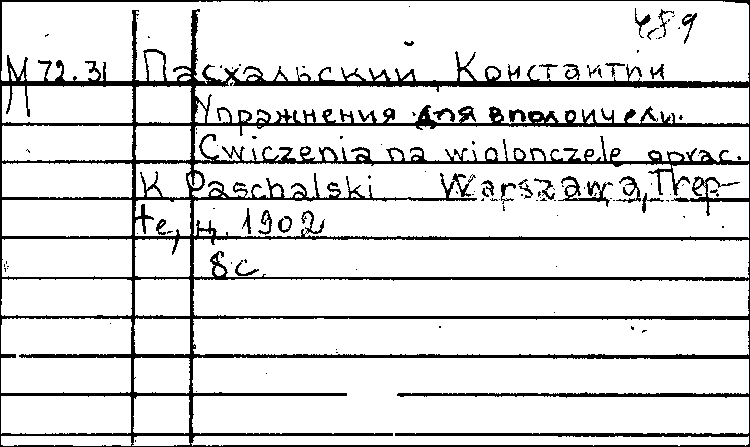 489
М 72.31 Пасхальский, Константин
Упражнения для виолончели.
Cwiczenia na wiolonczele oprac.
K. Paschalski Warszawa, Trep-
te, ц. 1902
8 с.